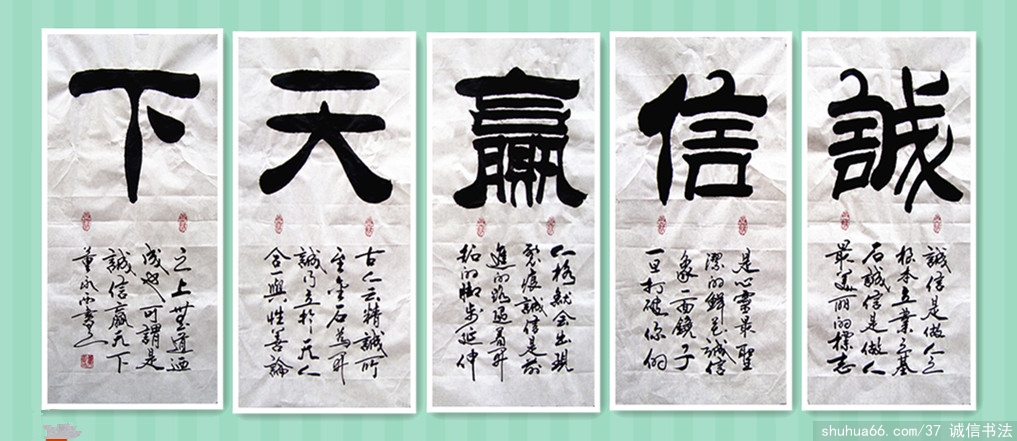 誠
誠信是做人之
根本立業之基
石誠信是做人
最美丽的標志
信
是心靈最聖
潔的鮮花誠信
象一面鏡子
一旦打破你的
贏
人格就会出現
裂痕誠信是前
進的路隨着开
拓的脚步延伸
天
古人云精誠所
至金石為开
誠乃立於天人
合一與性善論
下
之上
可謂是
誠信贏天下
shuhua66.com/37 诚信书法